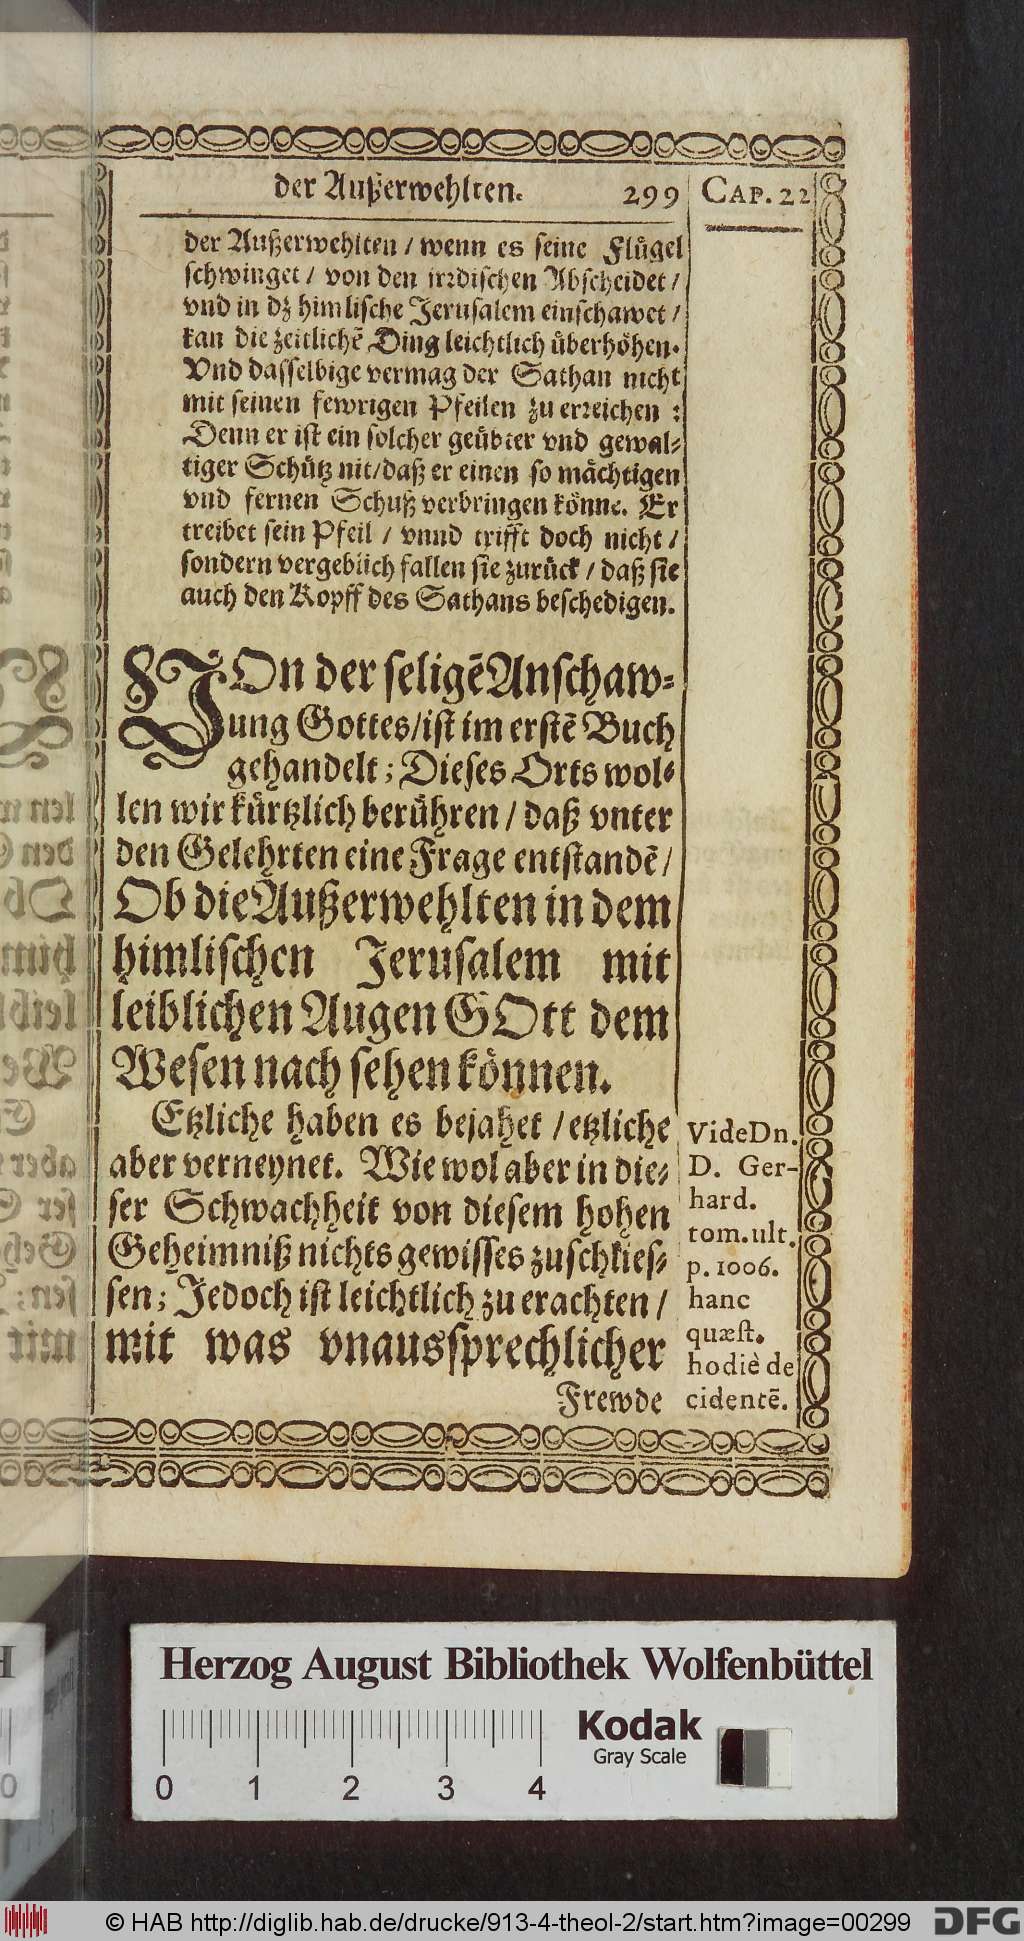 der Außerwehlten. 299 CAP. 22
der Außerwehlten / wenn es seine Flügel
schwinget / von den irrdischen Abscheidet /
vnd in dz himlische Jerusalem einschawet /
kan die zeitlichẽ Ding leichtlich überhöhen.
Vnd dasselbige vermag der Sathan nicht
mit seinen fewrigen Pfeilen zu erreichen :
Denn er ist ein solcher geübter vnd gewal-
tiger Schütz nit / daß er einen so mächtigen
vnd fernen Schuß verbringen könne. Er
treibet sein Pfeil / vnnd trifft doch nicht /
sondern vergeblich fallen sie zurück / daß sie
auch den Kopff des Sathans beschedigen.
VOn der seligẽ Anschaw-
ung Gottes / ist im erstẽ Buch
gehandelt ; Dieses Orts wol-
len wir kürtzlich berühren / daß vnter
den Gelehrten eine Frage entstandẽ /
Ob die Außerwehlten in dem
himlischen Jerusalem mit
leiblichen Augen GOtt dem
Wesen nach sehen können.
Etzliche haben es bejahet / etzliche
aber verneynet. Wie wol aber in die-
ser Schwachheit von diesem hohen
Geheimniß nichts gewisses zuschlies-
sen ; Jedoch ist leichtlich zu erachten /
mit was vnaussprechlicher
Frewde
Vide Dn.
D. Ger-
hard.
tom. ult.
p. 1006.
hanc
quæst.
hodiè de
cidentẽ.
Herzog August Bibliothek Wolfenbüttel
Kodak
Gray Scale
0 1 2 3 4
© HAB http://diglib.hab.de/drucke/913-4-theol-2/start.htm?image=00299
DFG